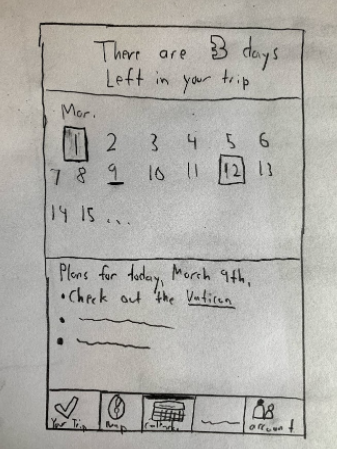 There are 3 days
Left in your trip
Mar.
1 2 3 4 5 6
7 8 9 10 11 12 13
14 15 ...
Plans for today, March 9th,
• Check out the Vatican
•
•
Your Trip Map Calendar account